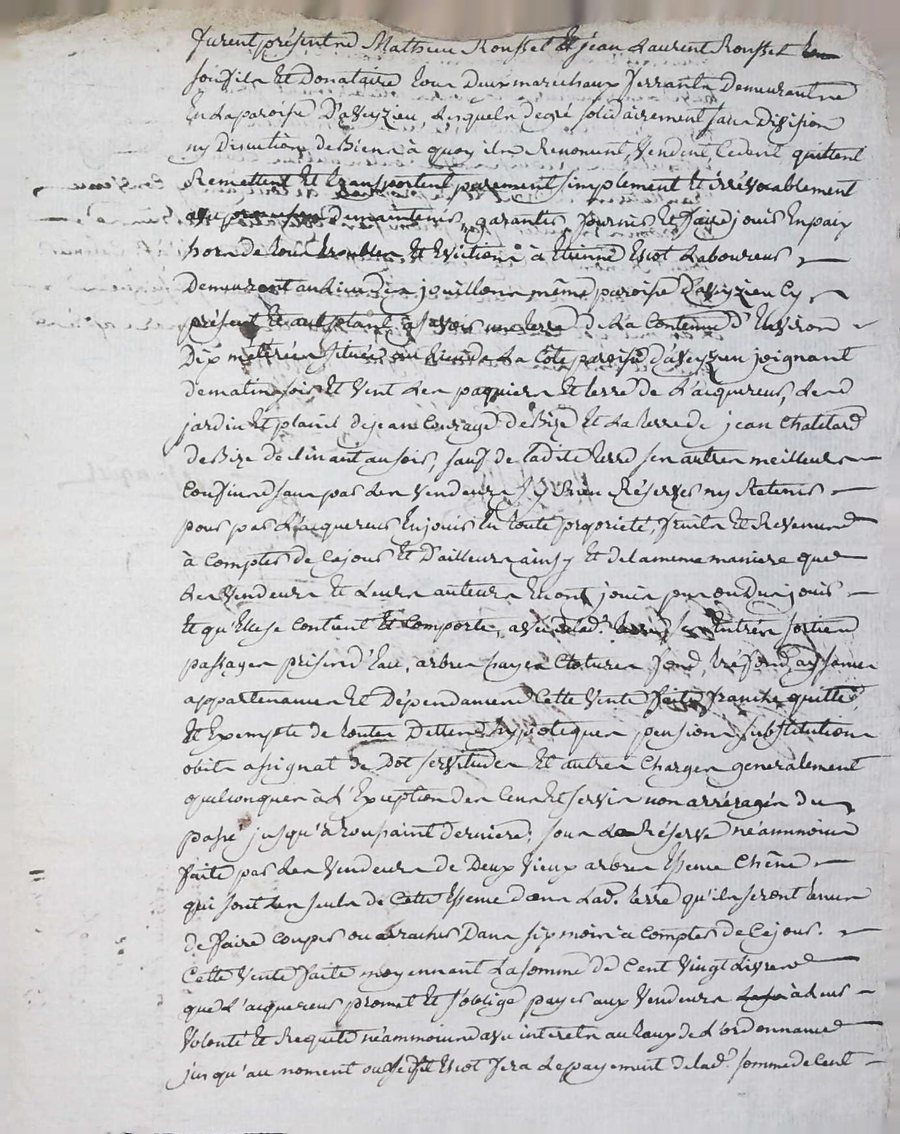 furent présents Mathieu Rousset et jean Laurent Rousset
son fils et Donataire tous Deux maréchaux ferrants Demeurants
En la paroise D'aveyzieu, Lesquels de gré solidairement sans Division
ny Discution de Biens à quoy ils Renoncent, Vendent, Cedent quittent
Remettent Et transportent purement simplement et irrévocablement
avec promesse de maintenir, garantir, fournir Et faire jouir En paix
hors de tous troubles Et Evictions à Etienne Escot Laboureur
Demeurant au Lieu des jouillons même paroise D'aveyzieu Cy
présent Et acceptant asavoir une terre de La Contenue d'Environ
Dix mettrées située au Lieu de La Côte paroise d'aveyzieu joignant
de matin soir Et Vent Les paquiers Et terre de L'acquereur, Les
jardin Et plaint de jean Courage de Bize Et La terre de jean Chatelard
de Bize déclinant au soir, sauf de ladite terre ses autres meilleurs
Confins sans par Les Vendeurs s'y Rien Réserver ny Retenir
pour par L'acquereur En jouir En toute propriété, fruits Et Revenus
à Compter de Ce jour Et D'ailleurs ainsy Et de la meme maniere que
Les Vendeurs Et Leurs auteurs En ont jouis pu ou Du jouir
Et qu'Elle se Contient Et Comporte, avec lad. terre ses Entrées sorties
passages prises d'Eau, arbres hayes Clotures fond, tréfond, aysances
appartenances Et Dépendances Cette Vente faite franche quitte,
Et Exempte de toutes Dettes hypoteques pensions substitutions
obits assignat de Dot servitudes Et autres Charges generalement
quelconques à L'Exception des Cens Et servis non arréragés du
passé jusqu'à toussaint Derniere; sous La Réserve néammoins
faite par Les Vendeurs de Deux Vieux arbres Essence Chêne
qui sont Les seuls de Cette Essence dans Lad. terre qu'ils seront tenus
de faire Couper ou arracher Dans six mois à Compter de Ce jour.
Cette Vente faite moyennant La somme de Cent Vingt Livres
que L'acquereur promet Et s'oblige payer aux Vendeurs à Leur
Volonté Et Requete néammoins avec interets au taux de L'ordonnance
jusqu'au moment ou Ledit Escot fera Le payement de lad. somme de Cent